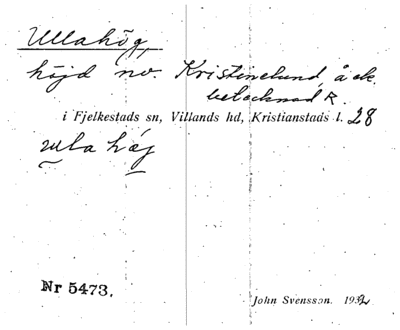 Ullahög,
höjd nv. Kristinelund, å ek.
betecknad R.
i Fjelkestads sn, Villands hd, Kristianstads l. 28
ulla häj
Nr 5473.
John Svensson. 1932